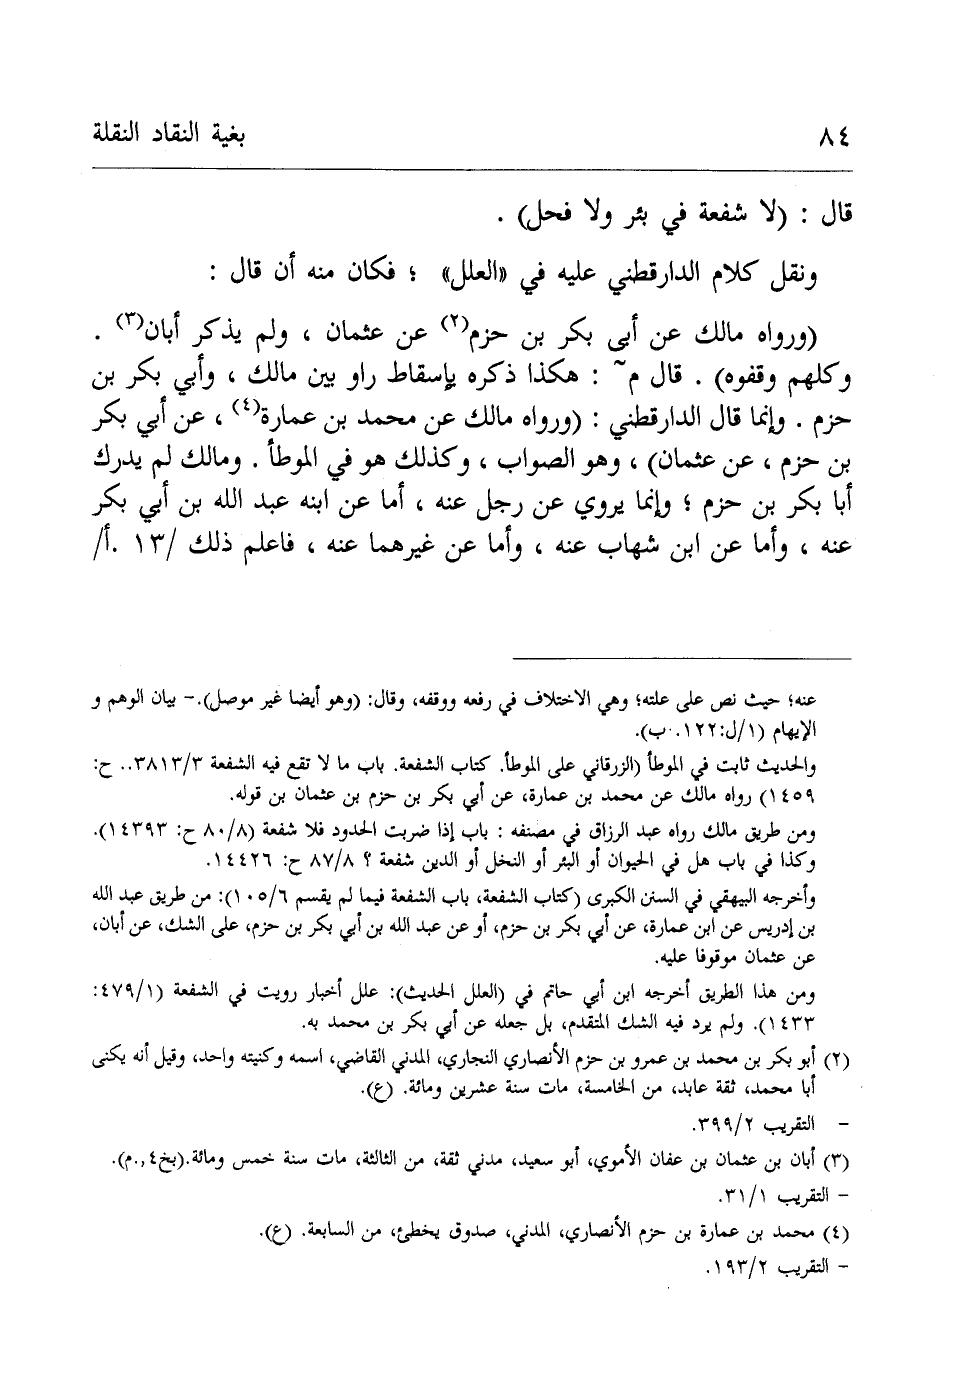 ٨٤ بغية النقاد النقلة
قال : (لا شفعة في بئر ولا فحل) .
ونقل كلام الدارقطني عليه في «العلل» ؛ فكان منه أن قال :
(ورواه مالك عن أبي بكر بن حزم(٢) عن عثمان ، ولم يذكر أبان(٣) .
وكلهم وقفوه) . قال م~ : هكذا ذكره بإسقاط راو بين مالك ، وأبي بكر بن
حزم . وإنما قال الدارقطني : (ورواه مالك عن محمد بن عمارة(٤) ، عن أبي بكر
بن حزم ، عن عثمان) ، وهو الصواب ، وكذلك هو في الموطأ . ومالك لم يدرك
أبا بكر بن حزم ؛ وإنما يروي عن رجل عنه ، أما عن ابنه عبد الله بن أبي بكر
عنه ، وأما عن ابن شهاب عنه ، وأما عن غيرهما عنه ، فاعلم ذلك /١٣ .أ/
عنه؛ حيث نص على علته؛ وهي الاختلاف في رفعه ووقفه، وقال: (وهو أيضا غير موصل).- بيان الوهم و
الإيهام (١/ل:١٢٢.ب).
والحديث ثابت في الموطأ (الزرقاني على الموطأ. كتاب الشفعة. باب ما لا تقع فيه الشفعة ٣٨١٣/٣.. ح:
١٤٥٩) رواه مالك عن محمد بن عمارة، عن أبي بكر بن حزم بن عثمان بن قوله.
ومن طريق مالك رواه عبد الرزاق في مصنفه : باب إذا ضربت الحدود فلا شفعة (٨٠/٨ ح: ١٤٣٩٣).
وكذا في باب هل في الحيوان أو البئر أو النخل أو الدين شفعة ؟ ٨٧/٨ ح: ١٤٤٢٦.
وأخرجه البيهقي في السنن الكبرى (كتاب الشفعة، باب الشفعة فيما لم يقسم ١٠٥/٦): من طريق عبد الله
بن إدريس عن ابن عمارة، عن أبي بكر بن حزم، أو عن عبد الله بن أبي بكر بن حزم، على الشك، عن أبان،
عن عثمان موقوفا عليه.
ومن هذا الطريق أخرجه ابن أبي حاتم في (العلل الحديث): علل أخبار رويت في الشفعة (٤٧٩/١:
١٤٣٣). ولم يرد فيه الشك المتقدم، بل جعله عن أبي بكر بن محمد به.
(٢) أبو بكر بن محمد بن عمرو بن حزم الأنصاري النجاري، المدني القاضي، اسمه وكنيته واحد، وقيل أنه يكنى
أبا محمد، ثقة عابد، من الخامسة، مات سنة عشرين ومائة. (ع).
- التقريب ٣٩٩/٢.
(٣) أبان بن عثمان بن عفان الأموي، أبو سعيد، مدني ثقة، من الثالثة، مات سنة خمس ومائة.(بخ٤,.م).
- التقريب ٣١/١.
(٤) محمد بن عمارة بن حزم الأنصاري، المدني، صدوق يخطئ، من السابعة. (ع).
- التقريب ١٩٣/٢.